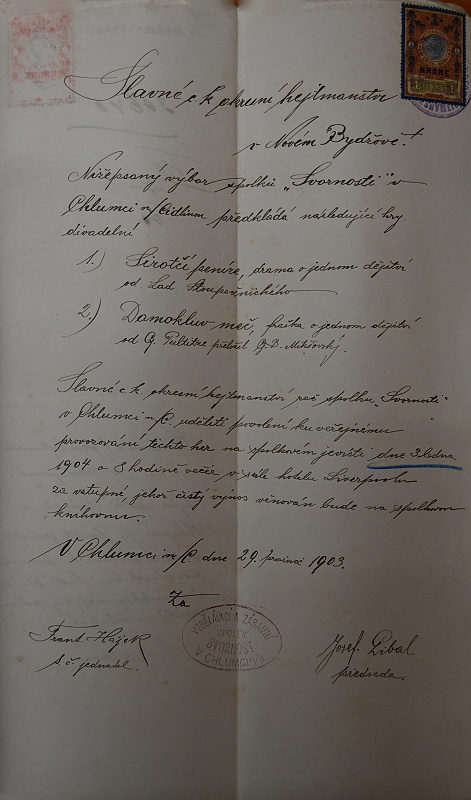 1
KRONE
1 1898 1
Slavné c. k. okresní hejtmanství
v Novém Bydžově!
Nížepsaný výbor spolku „Svornosti" v
Chlumci n/Cidlinou předkládá následující hry
divadelní
1.) Sirotčí peníze, drama o jednom dějství
od Lad Stroupežnického
2.) Damokluv meč, fraška o jednom dějství
od G. Putlitze přeložil J. B. Mikšovský.
Slavné c. k. okresní hejtmanství rač spolku „Svornosti"
v Chlumci n/C. uděliti povolení ku veřejnému
provozování těchto her na spolkovém jevišti dne 3. ledna
1904 o 8 hodině večer v sále hotelu Liverpoolu
za vstupné, jehož čistý výnos věnován bude na spolkovou
knihovnu.
V Chlumci n/C. dne 29. prosince 1903.
Za
VZDĚLÁVACÍ A ZÁBAVNÝ
SPOLEK
SVORNOST
V CHLUMCI N/C
Frant. Hájek
t. č. jednatel.
Josef Libal
předseda.